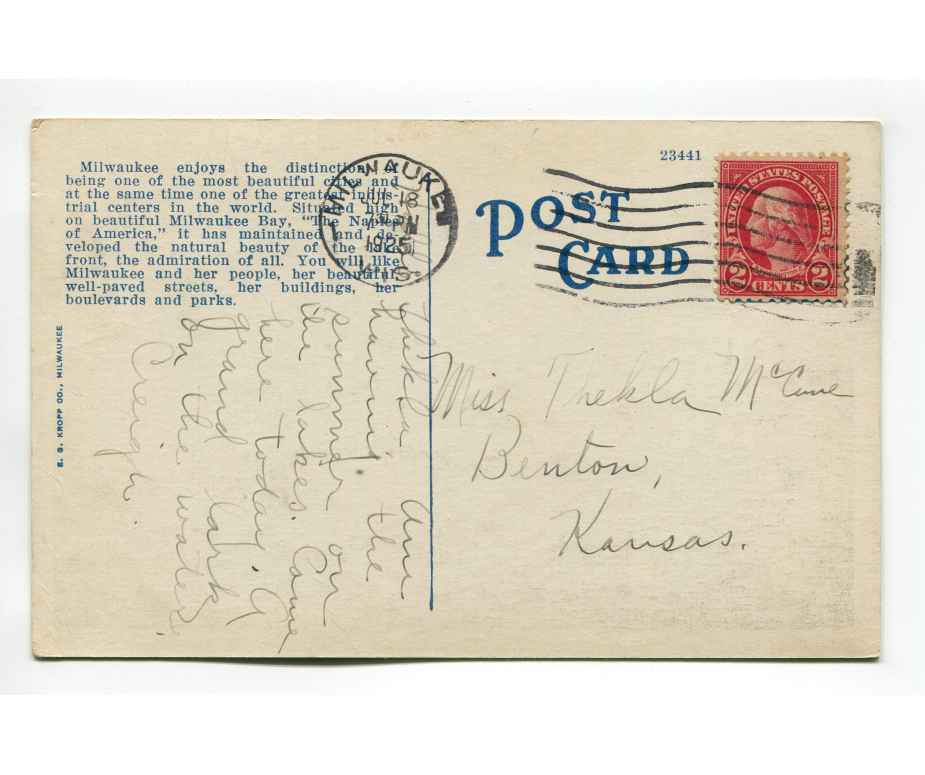 Milwaukee enjoys the distinction of
being one of the most beautiful cities and
at the same time one of the greatest indus-
trial centers in the world. Situated high
on beautiful Milwaukee Bay, "The Naples
of America," it has maintained and de-
veloped the natural beauty of the
front, the admiration of all. You will like
Milwaukee and her people, her beautiful
well-paved streets, her buildings, her
boulevards and parks.
E. G. KROPP CO., MILWAUKEE
Thekla Am
having the
summer on
the lakes. Came
here today. A
grand lark
on the water.
Creigh.
MILWAUKEE
JUL 18
PM
1925
WIS.
23441
POST
CARD
UNITED STATES POSTAGE
2 CENTS 2
Miss Thekla McCune
Benton,
Kansas.